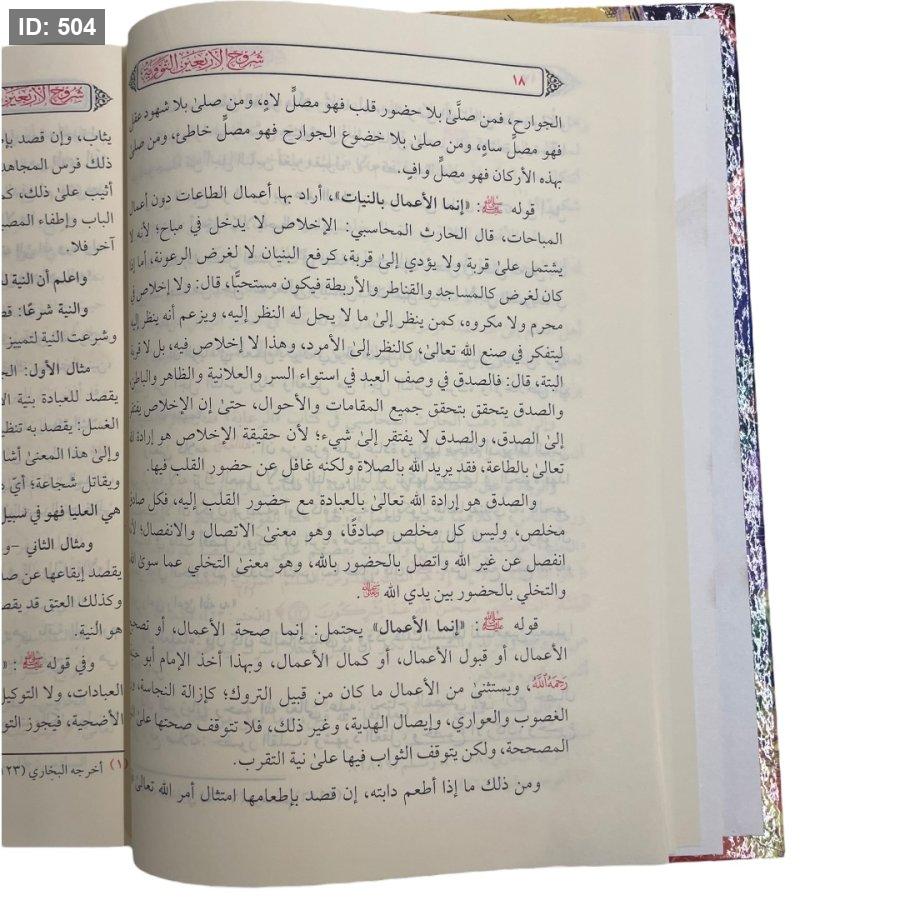 ID: 504
شروح الأربعين النووية
١٨
الجوارح، فمن صلَّىٰ بلا حضور قلب فهو مصلٍّ لاهٍ، ومن صلىٰ بلا شهود عقل
فهو مصلٍّ ساهٍ، ومن صلىٰ بلا خضوع الجوارح فهو مصلٍّ خاطئ، ومن صلىٰ
بهذه الأركان فهو مصلٍّ وافٍ.
قوله ﷺ: «إنما الأعمال بالنيات»، أراد بها أعمال الطاعات دون أعمال
المباحات، قال الحارث المحاسبي: الإخلاص لا يدخل في مباح؛ لأنه لا
يشتمل علىٰ قربة ولا يؤدي إلىٰ قربة، كرفع البنيان لا لغرض الرعونة، أما إذا
كان لغرض كالمساجد والقناطر والأربطة فيكون مستحبًّا، قال: ولا إخلاص في
محرم ولا مكروه، كمن ينظر إلىٰ ما لا يحل له النظر إليه، ويزعم أنه ينظر إليه
ليتفكر في صنع الله تعالىٰ، كالنظر إلىٰ الأمرد، وهذا لا إخلاص فيه، بل لا قربة
البتة، قال: فالصدق في وصف العبد في استواء السر والعلانية والظاهر والباطن،
والصدق يتحقق بتحقق جميع المقامات والأحوال، حتىٰ إن الإخلاص يفتقر
إلىٰ الصدق، والصدق لا يفتقر إلىٰ شيء؛ لأن حقيقة الإخلاص هو إرادة الله
تعالىٰ بالطاعة، فقد يريد الله بالصلاة ولكنه غافل عن حضور القلب فيها.
والصدق هو إرادة الله تعالىٰ بالعبادة مع حضور القلب إليه، فكل صادق
مخلص، وليس كل مخلص صادقًا، وهو معنىٰ الاتصال والانفصال؛ لأنه
انفصل عن غير الله واتصل بالحضور بالله، وهو معنىٰ التخلي عما سوىٰ الله
والتحلي بالحضور بين يدي الله
قوله ﷺ: «إنما الأعمال» يحتمل: إنما صحة الأعمال، أو تصحيح
الأعمال، أو قبول الأعمال، أو كمال الأعمال، وبهذا أخذ الإمام أبو
رَحِمَهُ ٱللَّهُ، ويستثنىٰ من الأعمال ما كان من قبيل التروك؛ كإزالة النجاسة،
الغصوب والعواري، وإيصال الهدية، وغير ذلك، فلا تتوقف صحتها علىٰ
المصححة، ولكن يتوقف الثواب فيها علىٰ نية التقرب.
ومن ذلك ما إذا أطعم دابته، إن قصد بإطعامها امتثال أمر الله تعالىٰ
شروح الأربعين
يثاب، وإن قصد
ذلك فرس المجاهد
أثيب علىٰ ذلك،
الباب وإطفاء
آخر فلا.
واعلم أن النية
والنية شرعًا:
وشرعت النية لتمييز
مثال الأول:
يقصد للعبادة بنية
الغسل: يقصد به
وإلىٰ هذا المعنىٰ
ويقاتل شجاعة؛
هي العليا فهو في سبيل
ومثال الثاني
يقصد إيقاعها عن
وكذلك العتق قد
هو النية.
وفي قوله ﷺ:
العبادات، ولا التوكيل
الأضحية، فيجوز
(١) أخرجه البخاري